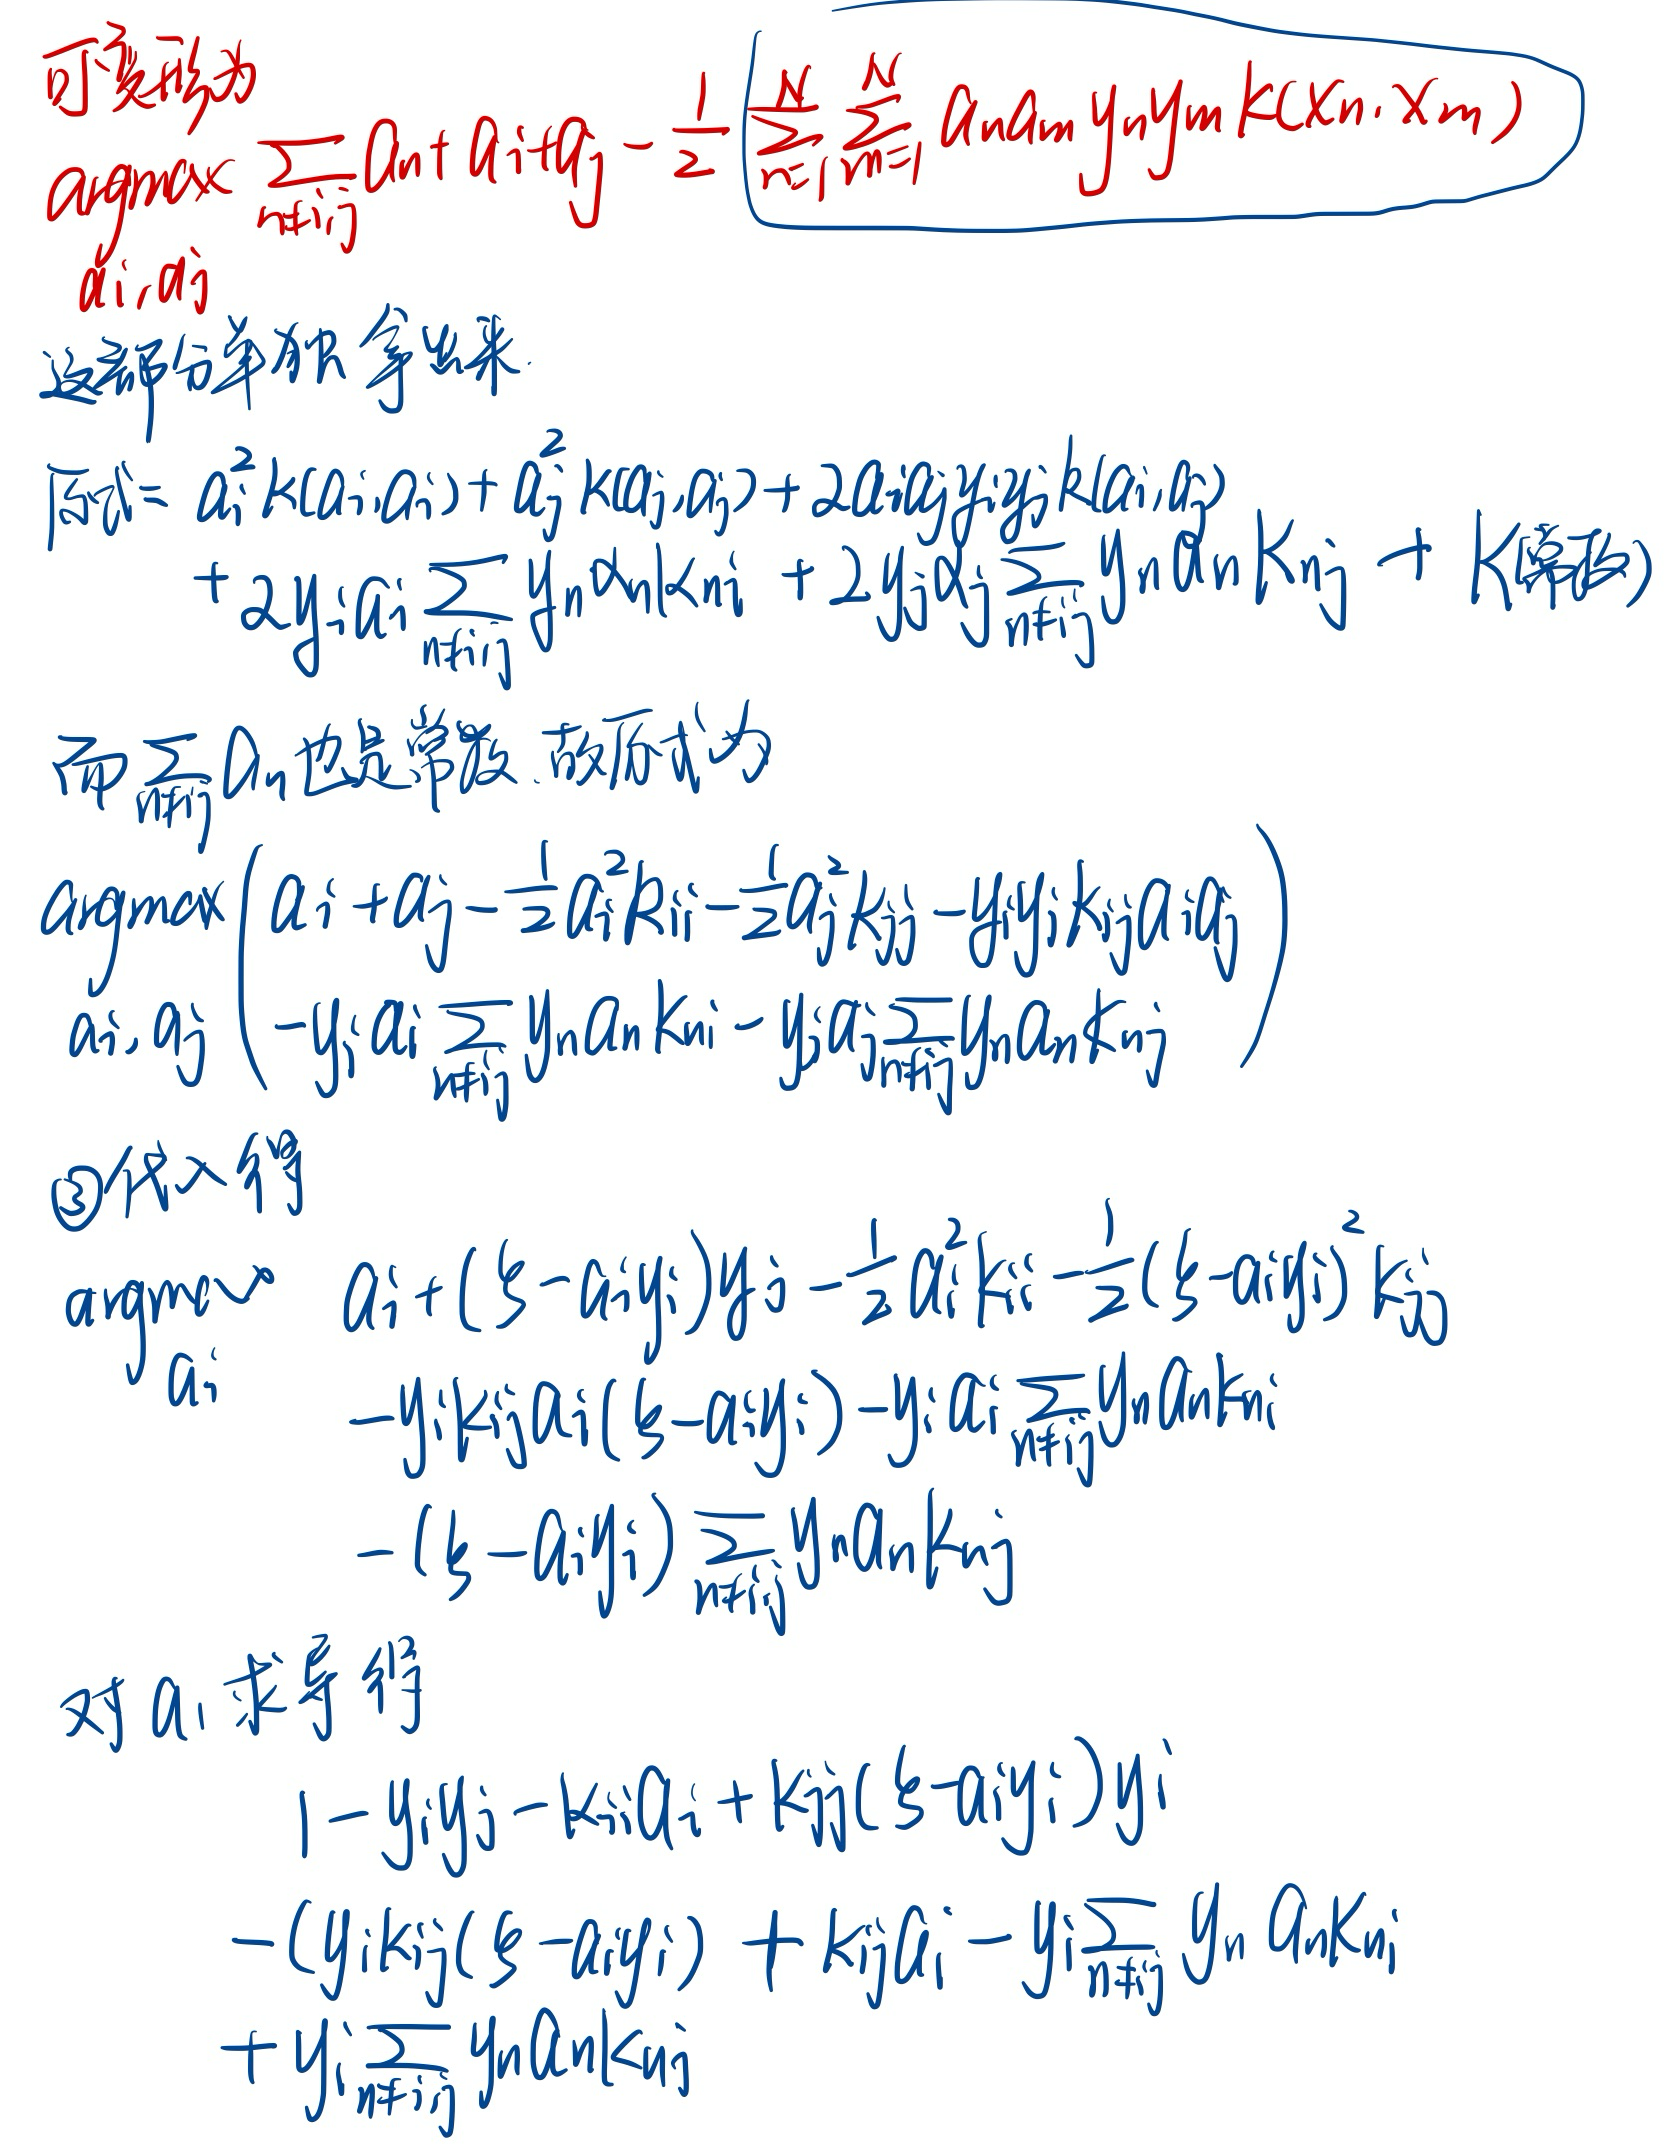 可变形为
argmax Σ_{n≠i,j} a_n + a_i + a_j - 1/2 Σ_{n=1}^{N} Σ_{m=1}^{N} a_n a_m y_n y_m k(x_n · x_m)
a_i, a_j
这部分单独拿出来.
原式= a_i² k(a_i, a_i) + a_j² k(a_j, a_j) + 2a_i a_j y_i y_j k(a_i, a_j)
+ 2y_i a_i Σ_{n≠i,j} y_n α_n k_{ni} + 2y_j α_j Σ_{n≠ij} y_n a_n K_{nj} + K(常数)
而 Σ_{n≠ij} a_n 也是常数. 故原式为
argmax ( a_i + a_j - 1/2 a_i² k_{ii} - 1/2 a_j² k_{jj} - y_i y_j k_{ij} a_i a_j
a_i, a_j - y_i a_i Σ_{n≠ij} y_n a_n k_{ni} - y_j a_j Σ_{n≠ij} y_n a_n k_{nj} )
③代入得
argmax a_i + (ξ - a_i y_i) y_j - 1/2 a_i² k_{ii} - 1/2 (ξ - a_i y_i)² k_{jj}
a_i - y_i k_{ij} a_i (ξ - a_i y_i) - y_i a_i Σ_{n≠ij} y_n a_n k_{ni}
- (ξ - a_i y_i) Σ_{n≠ij} y_n a_n k_{nj}
对 a_i 求导得
1 - y_i y_j - k_{ii} a_i + k_{jj} (ξ - a_i y_i) y_i
- (y_i k_{ij} (ξ - a_i y_i) + k_{ij} a_i - y_i Σ_{n≠ij} y_n a_n k_{ni}
+ y_i Σ_{n≠i,j} y_n a_n k_{nj}